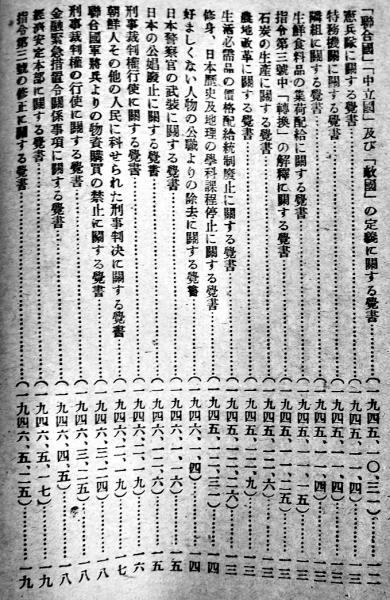 「聯合國」「中立國」及び「敵國」の定義に關する覺書……(一九四五、一〇、三一)……一二
憲兵隊に關する覺書……(一九四五、一一、四)……一二
特務機關に關する覺書……(一九四五、
隣組に關する覺書……(一九四五、
生鮮食料品の蒐荷配給に關する覺書……(一九四五、
指令第三號中「轉換」の解釋に關する覺書……(一九四五、一一、二五)……一三
石炭の生産に關する覺書……(一九四五、一二、六)……一三
農地改革に關する覺書……(一九四五、一二、
生活必需品の價格配給統制廢止に關する覺書……(一九四五、一二、二六)……一三
修身、日本歷史及地理の學科課程停止に關する覺書……(一九四五、一二、三一)……一四
好ましくない人物の公職よりの除去に關する覺書……(一九四六、一、四)……一四
日本警察官の武裝に關する覺書……(一九四六、一、一六)……一五
日本の公娼廢止に關する覺書……(一九四六、一、
刑事裁判權行使に關する覺書……(一九四六、二、一九)……一六
朝鮮人その他の人民に科せられた刑事判決に關する覺書……(一九四六、二、一九)……一七
聯合國軍將兵よりの物資購買の禁止に關する覺書……(一九四六、三、
刑事裁判權の行使に關する覺書……(一九四六、三、二五)……一八
金融緊急措置令關係事項に關する覺書……(一九四六、四、五)……一八
經濟安定本部に關する覺書……(一九四六、五、一七)……一九
指令第三號の修正に關する覺書……(一九四六、五、二五)……一九